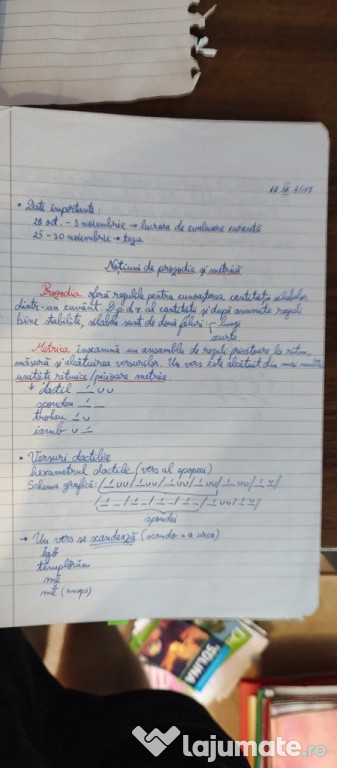 • Date importante:
28 oct. - 3 noiembrie → lucrare de evaluare curentă
25 - 30 noiembrie → teza
Noțiuni de prozodie și metrică
Prozodia oferă regulile pentru cunoașterea cantității silabelor
dintr-un cuvânt. D.p.d.v. al cantității și după anumite reguli
bine stabilite, silabele sunt de două feluri: - lungi
scurte
Metrica înseamnă un ansamblu de reguli privitoare la ritm,
măsură și alcătuirea versurilor. Un vers este alcătuit din mai multe
unități ritmice / picioare metrice.
↓ dactil _́ ∪ ∪
spondeu _́ _
troheu _́ ∪
iamb ∪ _́
• Versuri dactilice
hexametrul dactilic (vers al epopeei)
Schema grafică: /_́∪∪/_́∪∪/_́∪∪/_́∪∪/_́∪∪/_́ ∪/
/_́ _/_́ _/_́ _/_́ _/_́∪∪/_́ ∪/
spondei
→ Un vers se scandează (scando = a urca)
ĕgŏ
tēmplōrŭm
mē
mē
SOLINA
lajumate.ro